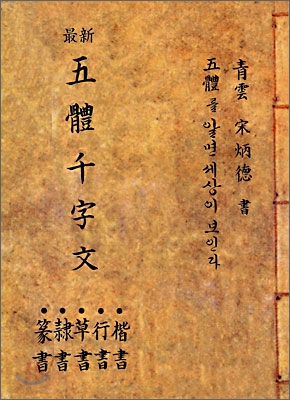 青雲 宋炳德 書
五體를 알면 세상이 보인다
最新
五體千字文
•楷書
•行書
•草書
•隷書
•篆書